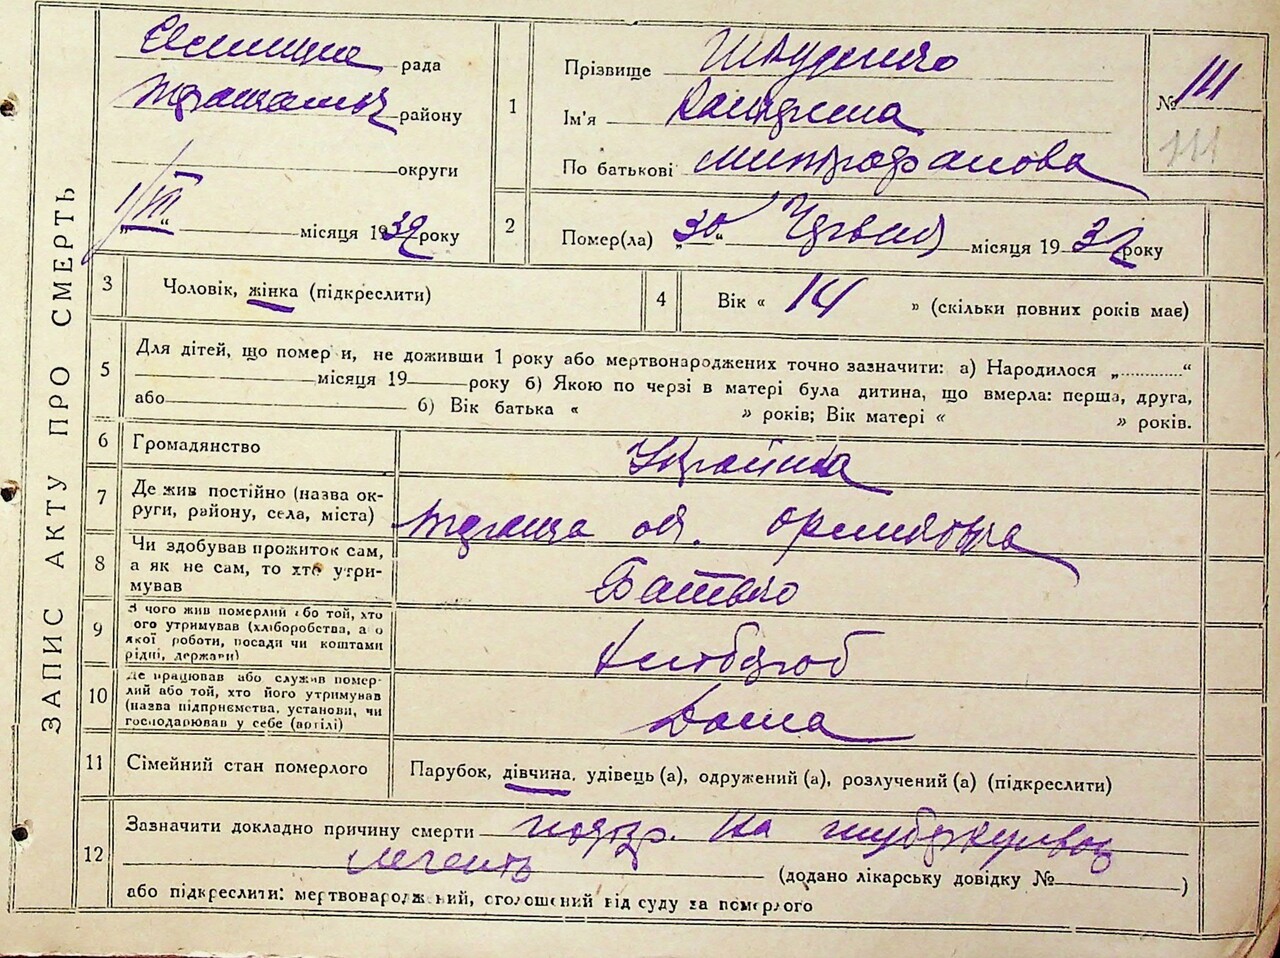 ЗАПИС АКТУ ПРО СМЕРТЬ
рада
району
округи
1/VII місяця 1932 року
1
Прізвище
Ім'я
По батькові Митрофанова
№ 111
111
2
Помер(ла) „30“ Червня місяця 1932 року
3
Чоловік, жінка (підкреслити)
4
Вік « 14 » (скільки повних років має)
5
Для дітей, що помер и, не доживши 1 року або мертвонароджених точно зазначити: а) Народилося „............“
місяця 19 року б) Якою по черзі в матері була дитина, що вмерла: перша, друга,
або б) Вік батька « » років; Вік матері « » років.
6
Громадянство Українка
7
Де жив постійно (назва ок-
руги, району, села, міста)
8
Чи здобував прожиток сам,
а як не сам, то хто утри-
мував
Батько
9
З чого жив померлий або той, хто
його утримував (хліборобства, а о
якої роботи, посади чи коштами
рідні, держави)
Хлібороб
10
Де працював або служив помер-
лий або той, хто його утримував
(назва підприємства, установи, чи
господарював у себе (артілі)
Дома
11
Сімейний стан померлого
Парубок, дівчина, удівець (а), одружений (а), розлучений (а) (підкреслити)
12
Зазначити докладно причину смерти на туберкульоз
легень (додано лікарську довідку № )
або підкреслити: мертвонароджений, оголошений від суду за померлого